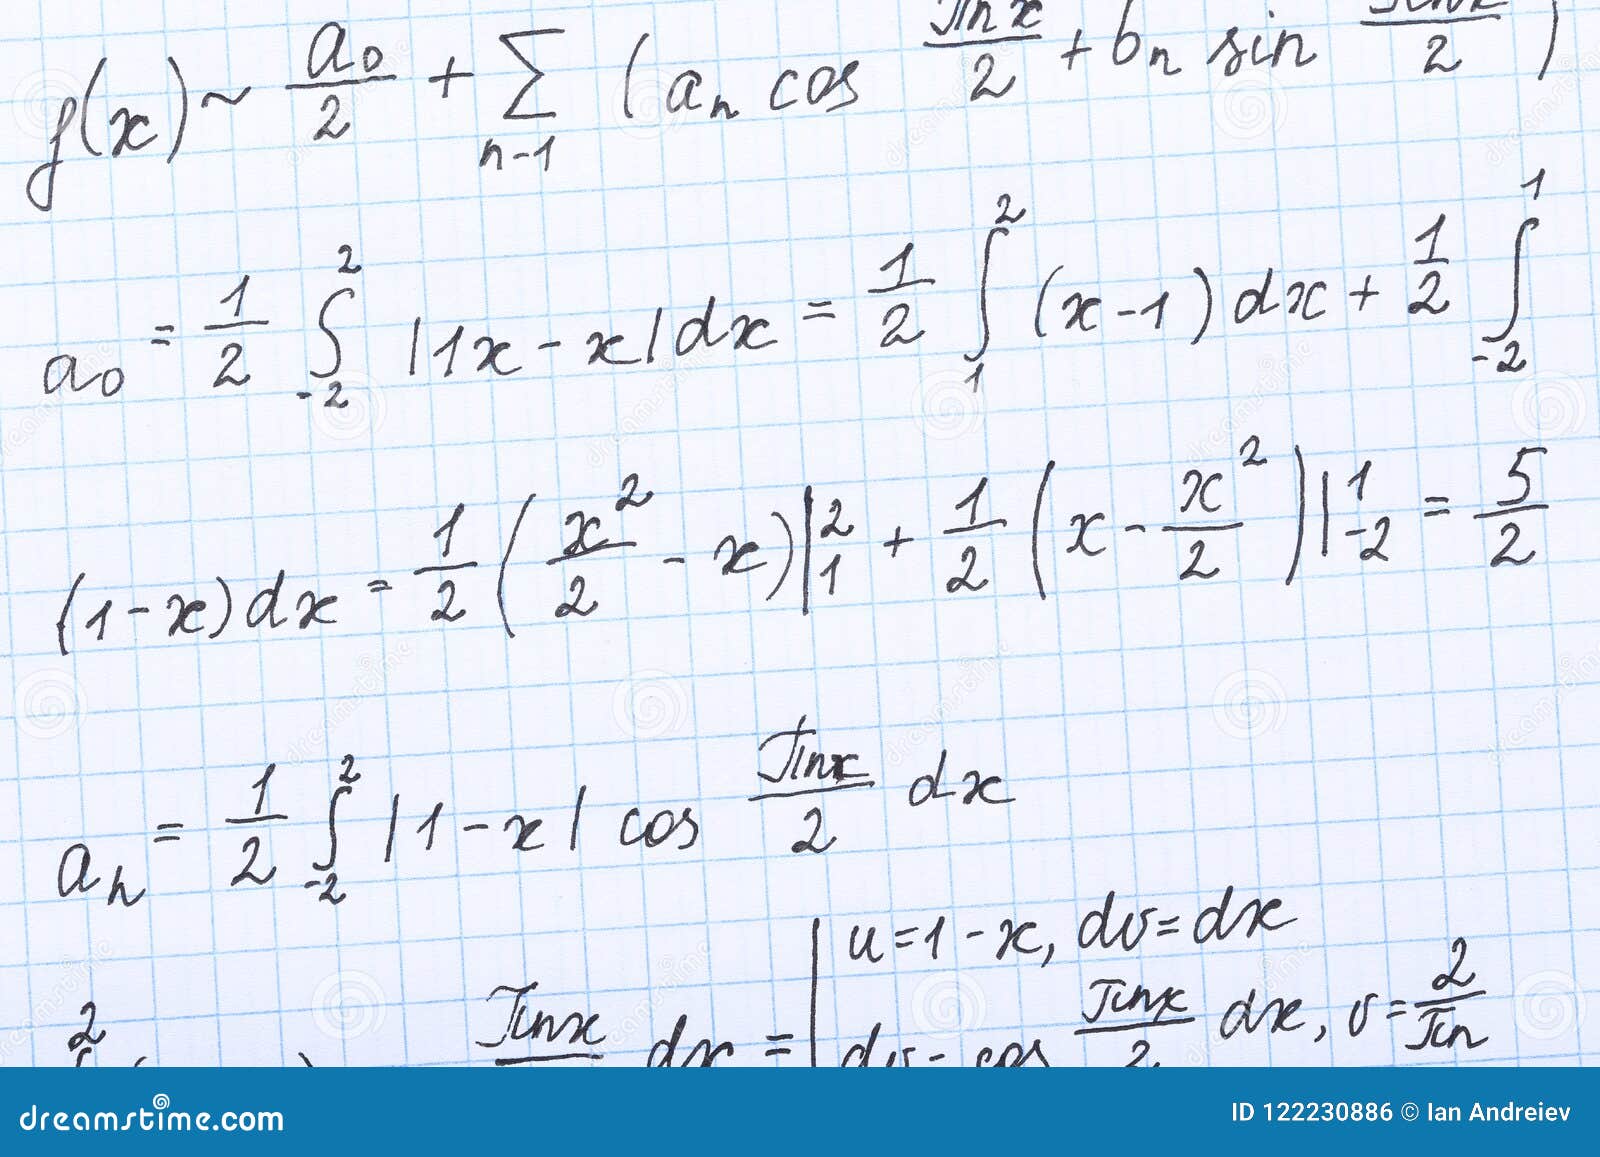 f(x) ~ a₀/2 + ∑ n-1 (aₙ cos πnx/2 + bₙ sin πnx/2)
a₀ = 1/2 ∫₋₂² |1x - x| dx = 1/2 ∫₁² (x-1) dx + 1/2 ∫₋₂¹
(1-x) dx = 1/2 (x²/2 - x)|₁² + 1/2 (x - x²/2)|₋₂¹ = 5/2
aₙ = 1/2 ∫₋₂² |1-x| cos πnx/2 dx
u=1-x, dv=dx
πnx dx = dv = cos πnx/2 dx, v = 2/πn
dreamstime.com
ID 122230886 © Ian Andreiev